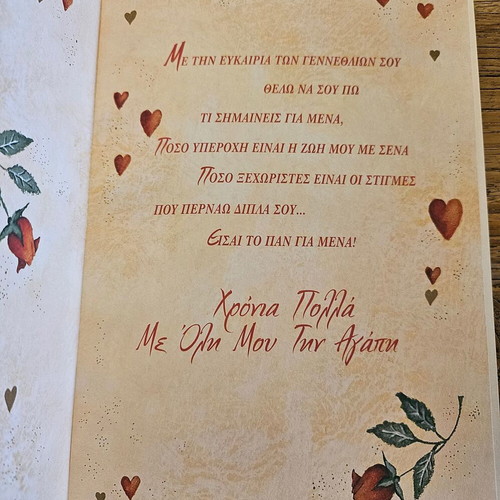 ΜΕ ΤΗΝ ΕΥΚΑΙΡΙΑ ΤΩΝ ΓΕΝΝΕΘΛΙΩΝ ΣΟΥ
ΘΕΛΩ ΝΑ ΣΟΥ ΠΩ
ΤΙ ΣΗΜΑΙΝΕΙΣ ΓΙΑ ΜΕΝΑ,
ΠΟΣΟ ΥΠΕΡΟΧΗ ΕΙΝΑΙ Η ΖΩΗ ΜΟΥ ΜΕ ΣΕΝΑ
ΠΟΣΟ ΞΕΧΩΡΙΣΤΕΣ ΕΙΝΑΙ ΟΙ ΣΤΙΓΜΕΣ
ΠΟΥ ΠΕΡΝΑΩ ΔΙΠΛΑ ΣΟΥ...
ΕΙΣΑΙ ΤΟ ΠΑΝ ΓΙΑ ΜΕΝΑ!
Χρόνια Πολλά
Με Όλη Μου Την Αγάπη